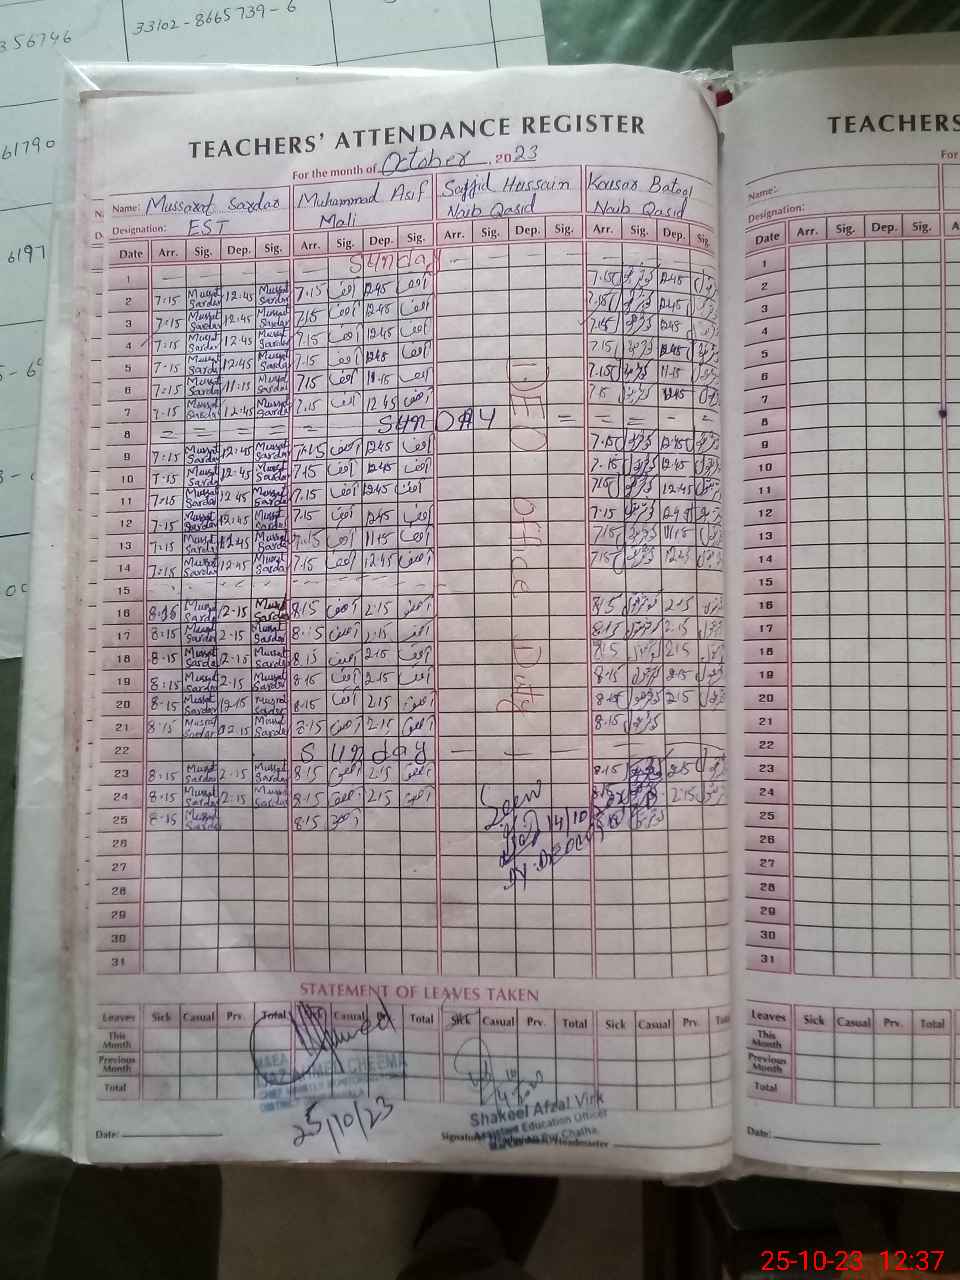 356746
33102-8665739-6
61790
6197
TEACHERS' ATTENDANCE REGISTER
For the month of October, 2023
Name: Mussarat Sardar Muhammad Asif Sajjid Hussain Kousar Batool
Designation: EST Mali Naib Qasid Naib Qasid
Date Arr. Sig. Dep. Sig. Arr. Sig. Dep. Sig. Arr. Sig. Dep. Sig. Arr. Sig. Dep. Sig.
1 Sunday
2 7:15 Mussrat Sardar 12:45 Mussrat Sardar 7.15 آصف 12.45 آصف 7.15
3 7:15 Mussrat Sardar 12:45 Mussrat Sardar 7.15 آصف 12.45 آصف 7.15 12.45
4 7:15 Mussrat Sardar 12:45 Mussrat Sardar 7.15 آصف 12.45 آصف 7.15 12.45
5 7:15 Mussrat Sardar 12:45 Mussrat Sardar 7.15 آصف 12.45 آصف 7.15 12.45
6 7:15 Mussrat Sardar 11:15 Mussrat Sardar 7.15 آصف 11.15 آصف 7.15 11.15
7 7:15 Mussrat Sardar 12:45 Mussrat Sardar 7.15 آصف 12.45 آصف 7.15 12.45
8 = = = = = SUNDAY = = - =
9 7:15 Mussrat Sardar 12:45 Mussrat Sardar 7.15 آصف 12.45 آصف 7.15 12.45
10 7:15 Mussrat Sardar 12:45 Mussrat Sardar 7.15 آصف 12.45 آصف 7.15 12.45
11 7:15 Mussrat Sardar 12:45 Mussrat Sardar 7.15 آصف 12.45 آصف 7.15 12.45
12 7:15 Mussrat Sardar 12:45 Mussrat Sardar 7.15 آصف 12.45 آصف 7.15
13 7:15 Mussrat Sardar Mussrat Sardar 7.15 آصف 11.15 آصف 7.15 11.15
14 7:15 Mussrat Sardar 12:45 Mussrat Sardar 7.15 آصف 12.45 آصف 7.15 12.45
15
16 8:15 Mussrat Sardar 2:15 Mussrat Sardar 8.15 آصف 2.15 آصف 8.15 2.15
17 8:15 Mussrat Sardar 2:15 Mussrat Sardar 8.15 آصف 2.15 آصف 8.15 2.15
18 8:15 Mussrat Sardar 2:15 Mussrat Sardar 8.15 آصف 2.15 آصف 8.15 2.15
19 8:15 Mussrat Sardar 2:15 Mussrat Sardar 8.15 آصف 2.15 آصف 8.15 2.15
20 8:15 Mussrat Sardar Mussrat Sardar 8.15 آصف 2.15 آصف 8.15 2.15
21 8:15 Mussrat Sardar 02:15 Mussrat Sardar 8.15 آصف 2.15 آصف 8.15
22 Sunday
23 8:15 Mussrat Sardar 2:15 Mussrat Sardar 8.15 آصف 2.15 آصف 8.15 2.15
24 8:15 Mussrat Sardar 2:15 Mussrat Sardar 8.15 آصف 2.15 آصف 8.15 2.15
25 8:15 Mussrat Sardar 8.15 آصف
26
27
28
29
30
31
DEO Office Duty
Seen
14/10
STATEMENT OF LEAVES TAKEN
Leaves Sick Casual Prv. Total Casual Prv. Total Sick Casual Prv. Total Sick Casual Prv. Total
This Month
Previous Month
Total
CHEEMA
25/10/23
Shakeel Afzal Virk
Assistant Education Officer
Date:
Signature Headmaster
TEACHERS
For
Name:
Designation:
Date Arr. Sig. Dep. Sig. A
1
2
3
4
5
6
7
8
9
10
11
12
13
14
15
16
17
18
19
20
21
22
23
24
25
26
27
28
29
30
31
Leaves Sick Casual Prv. Total
This Month
Previous Month
Total
Date:
25-10-23 12:37